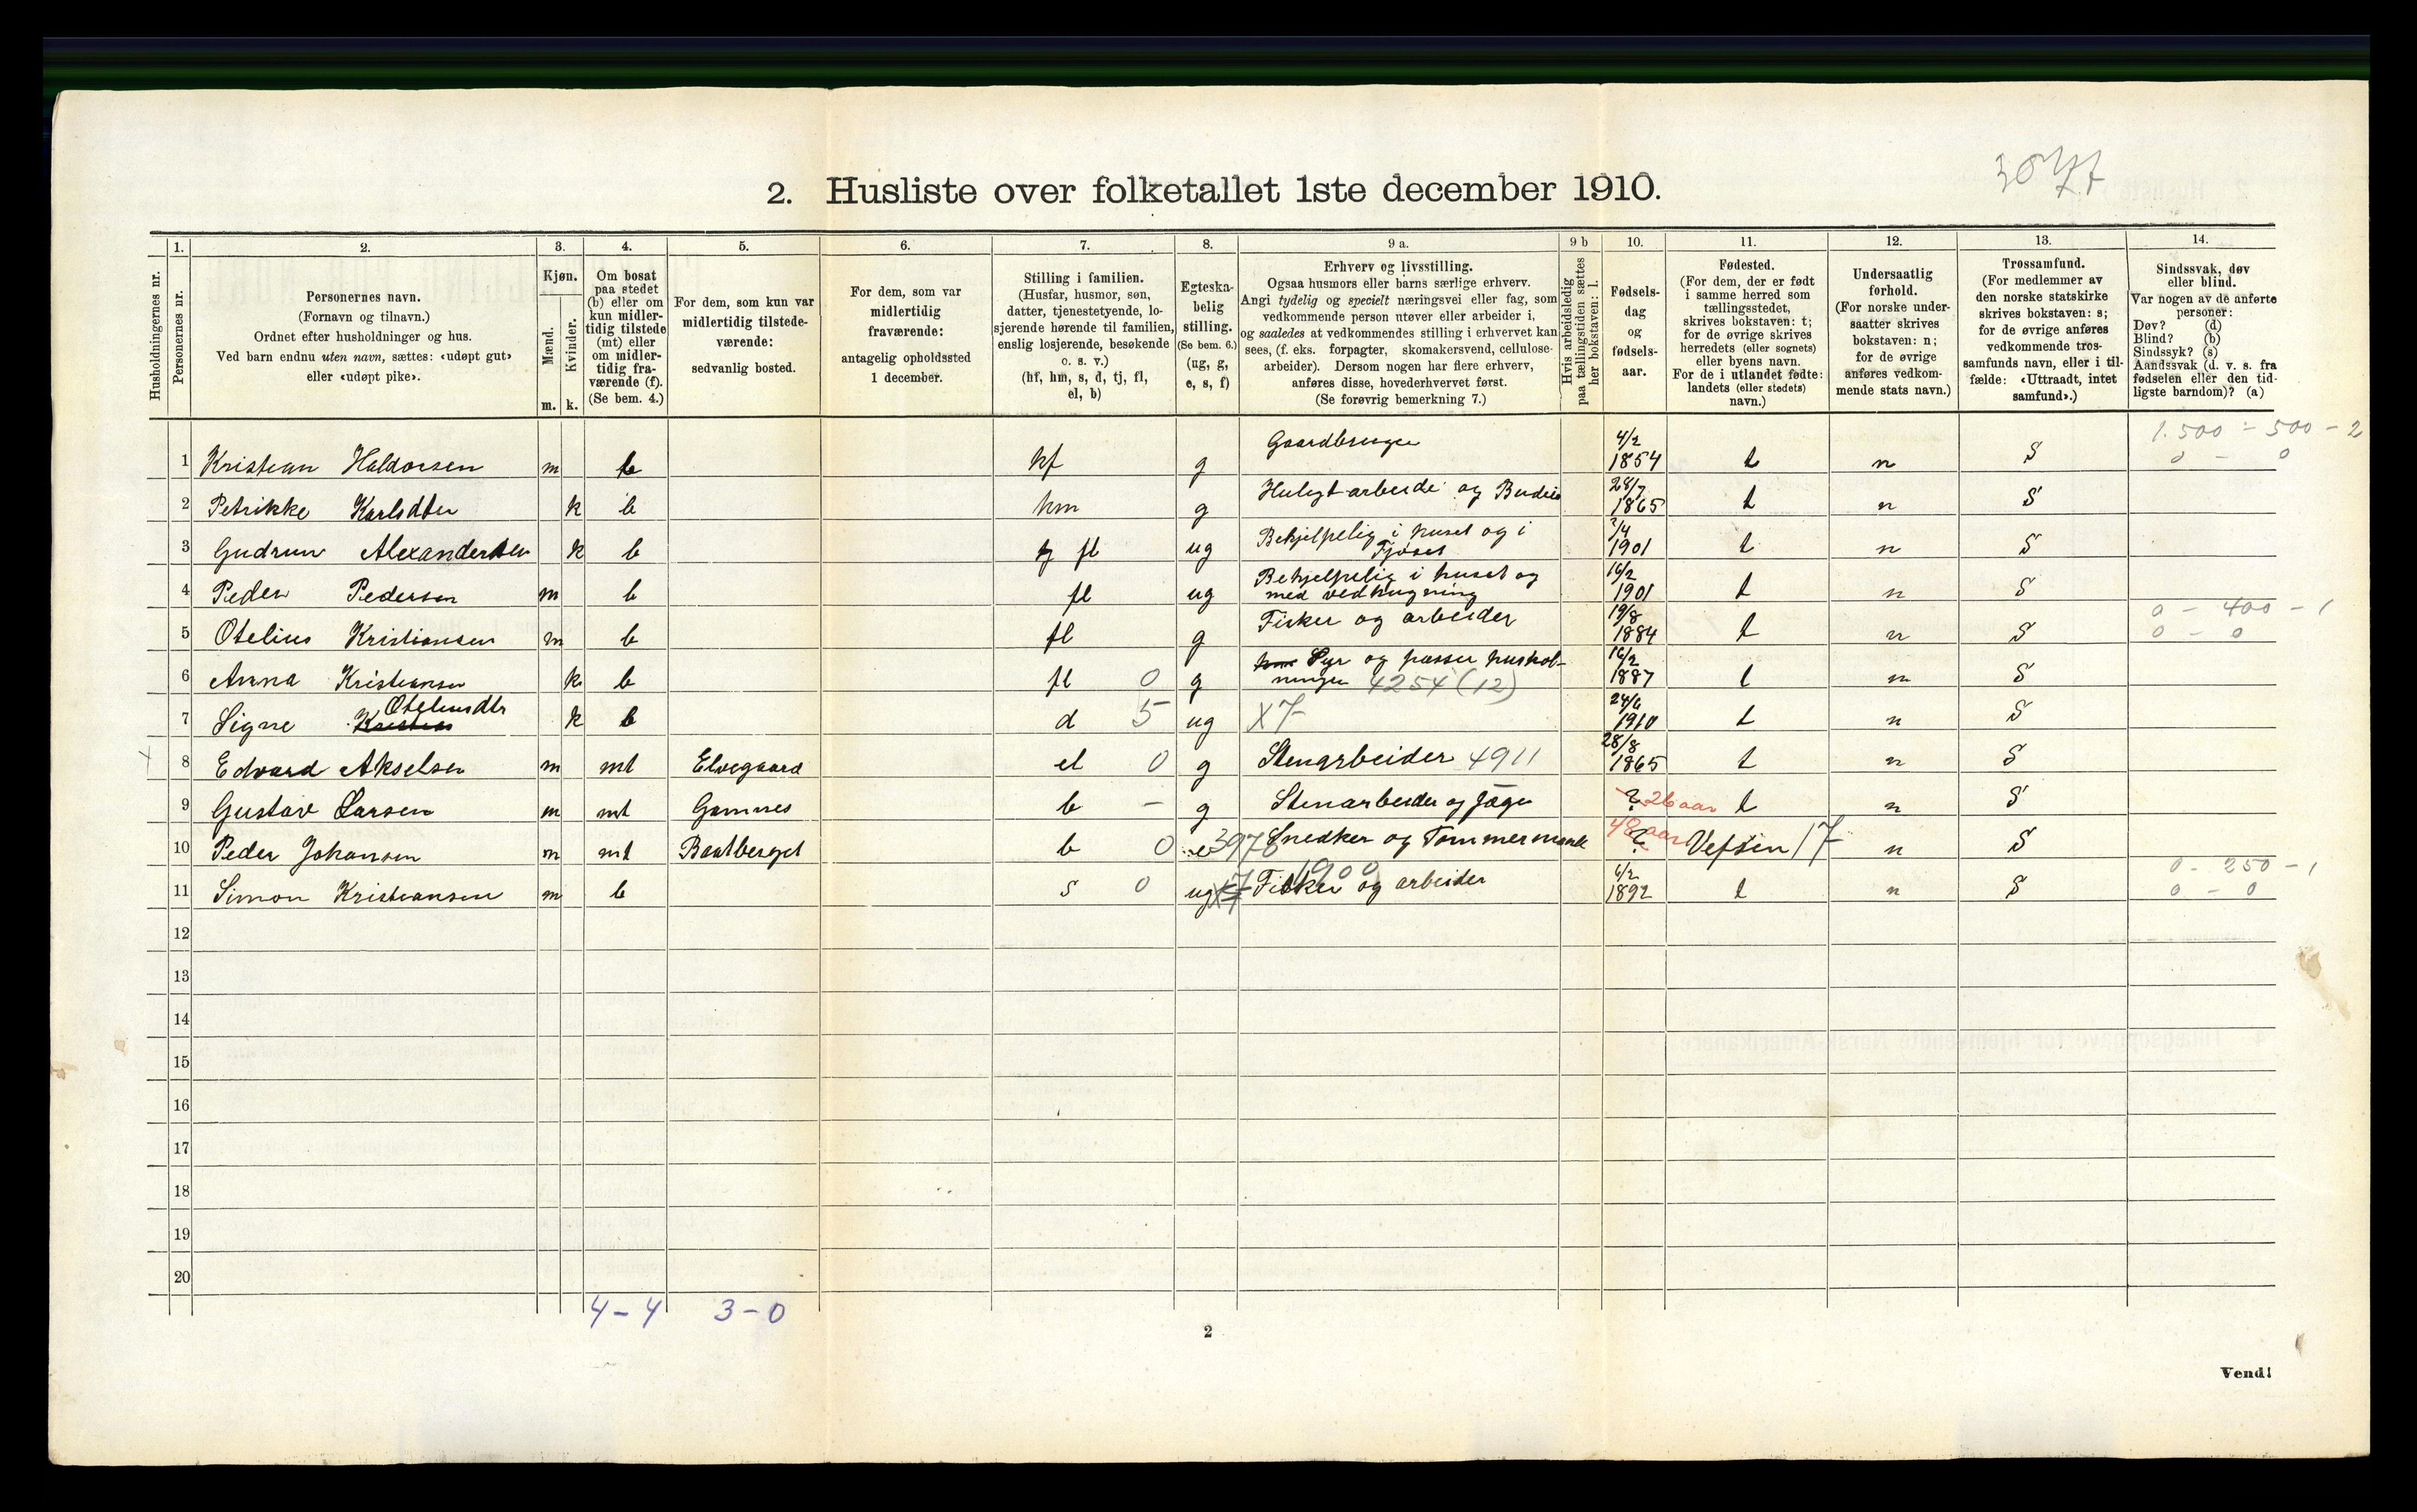 2. Husliste over folketallet 1ste december 1910.
Husholdningernes nr.
1. Personernes nr.
2. Personernes navn.
(Fornavn og tilnavn.)
Ordnet efter husholdninger og hus.
Ved barn endnu uten navn, sættes: «udøpt gut»
eller «udøpt pike».
3. Kjøn.
Mænd. m.
Kvinder. k.
4. Om bosat
paa stedet
(b) eller om
kun midler-
tidig tilstede
(mt) eller
om midler-
tidig fra-
værende (f).
(Se bem. 4.)
5. For dem, som kun var
midlertidig tilstede-
værende:
sedvanlig bosted.
6. For dem, som var
midlertidig
fraværende:
antagelig opholdssted
1 december.
7. Stilling i familien.
(Husfar, husmor, søn,
datter, tjenestetyende, lo-
sjerende hørende til familien,
enslig losjerende, besøkende
o. s. v.)
(hf, hm, s, d, tj, fl,
el, b)
8. Egteska-
belig
stilling.
(Se bem. 6.)
(ug, g,
e, s, f)
9 a. Erhverv og livsstilling.
Ogsaa husmors eller barns særlige erhverv.
Angi tydelig og specielt næringsvei eller fag, som
vedkommende person utøver eller arbeider i,
og saaledes at vedkommendes stilling i erhvervet kan
sees, (f. eks. forpagter, skomakersvend, cellulose-
arbeider). Dersom nogen har flere erhverv,
anføres disse, hovederhvervet først.
(Se forøvrig bemerkning 7.)
9 b Hvis arbeidsledig
paa tællingstiden sættes
her bokstaven: l.
10. Fødsels-
dag
og
fødsels-
aar.
11. Fødested.
(For dem, der er født
i samme herred som
tællingsstedet,
skrives bokstaven: t;
for de øvrige skrives
herredets (eller sognets)
eller byens navn.
For de i utlandet fødte:
landets (eller stedets)
navn.)
12. Undersaatlig
forhold.
(For norske under-
saatter skrives
bokstaven: n;
for de øvrige
anføres vedkom-
mende stats navn.)
13. Trossamfund.
(For medlemmer av
den norske statskirke
skrives bokstaven: s;
for de øvrige anføres
vedkommende tros-
samfunds navn, eller i til-
fælde: «Uttraadt, intet
samfund».)
14. Sindssvak, døv
eller blind.
Var nogen av de anførte
personer:
Døv? (d)
Blind? (b)
Sindssyk? (s)
Aandssvak (d. v. s. fra
fødselen eller den tid-
ligste barndom)? (a)
1 Kristian Haldorsen m b hf g Gaardbruger 4/2 1854 t n S 1.500 - 500 - 2
0 - 0
2 Petrikke Karlsdter k b hm g Huligt arbeide og Budeie 28/7 1865 t n S
3 Gudrun Alexandersen k b fl ug Behjelpelig i huset og i
Fjøset 1901 t n S
4 Peder Pedersen m b fl ug Behjelpelig i huset og
med vedhugning 16/2 1901 t n S
5 Otelius Kristiansen m b fl g Fisker og arbeider 19/8 1884 t n S 0 - 400 - 1
0 - 0
6 Anna Kristiansen k b fl 0 g Syr og passer hushol-
ningen 4254 (12) 16/2 1887 t n S
7 Signe Oteliusdtr k b d 5 ug X7 24/6 1910 t n S
8 Edvard Akselsen m mt Elvegaard el 0 g Stenarbeider 4911 28/8 1865 t n S
9 Gustav Larsen m mt Gamnes b - g Stenarbeider og Jæger ? 26 aar t n S
10 Peder Johansen m mt Baatberget b 0 e 3978 Snedker og Tømmermand 48 aar ? Vefsen 17 n S
11 Simon Kristiansen m b s 0 ug X7 1900 Fisker og arbeider 6/2 1892 t n S 0 - 250 - 1
0 - 0
12
13
14
15
16
17
18
19
20
4 - 4 3 - 0
2
Vend!